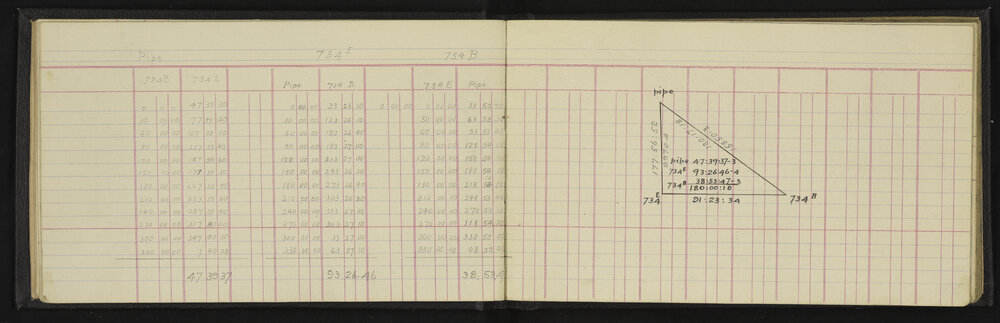 Pipe 734 E 734 B
734B 734 E Pipe 734 B 734 E Pipe
0 00 00 47 39 30 0 00 00 93 26 30 0 00 00 0 00 00 38 53 30
30 00 00 77 39 40 30 00 00 123 26 10 30 00 00 68 53 30
60 00 00 107 60 00 00 153 26 40 60 00 00 98 53
90 00 00 137 39 40 90 00 00 183 27 00 90 00 00 128 54 00
120 00 00 167 39 30 120 00 00 213 27 00 120 00 00 158 54 00
150 00 00 197 150 00 00 243 26 10 150 00 00 188 54 00
180 00 00 227 180 00 00 273 26 40 180 00 00 218 54 00
210 00 00 257 210 00 00 303 26 30 210 00 00 248 53
240 00 00 287 240 00 00 333 27 00 240 00 00 278 53
270 00 00 317 40 00 270 00 00 363 27 10 270 00 00 308 54
300 00 00 347 40 00 300 00 00 33 27 00 300 00 00 338 53
330 00 00 7 40 330 00 00 63 27 10 330 00 00 53
47 39 37 93 26 46 38 53 47
pipe
177:56:52
6970.4
130:17:18
pipe 47:39:37-3
734E 93:26:46-4
734B 38:53:47-3
180:00:10
734 E
91:23:34
734 B